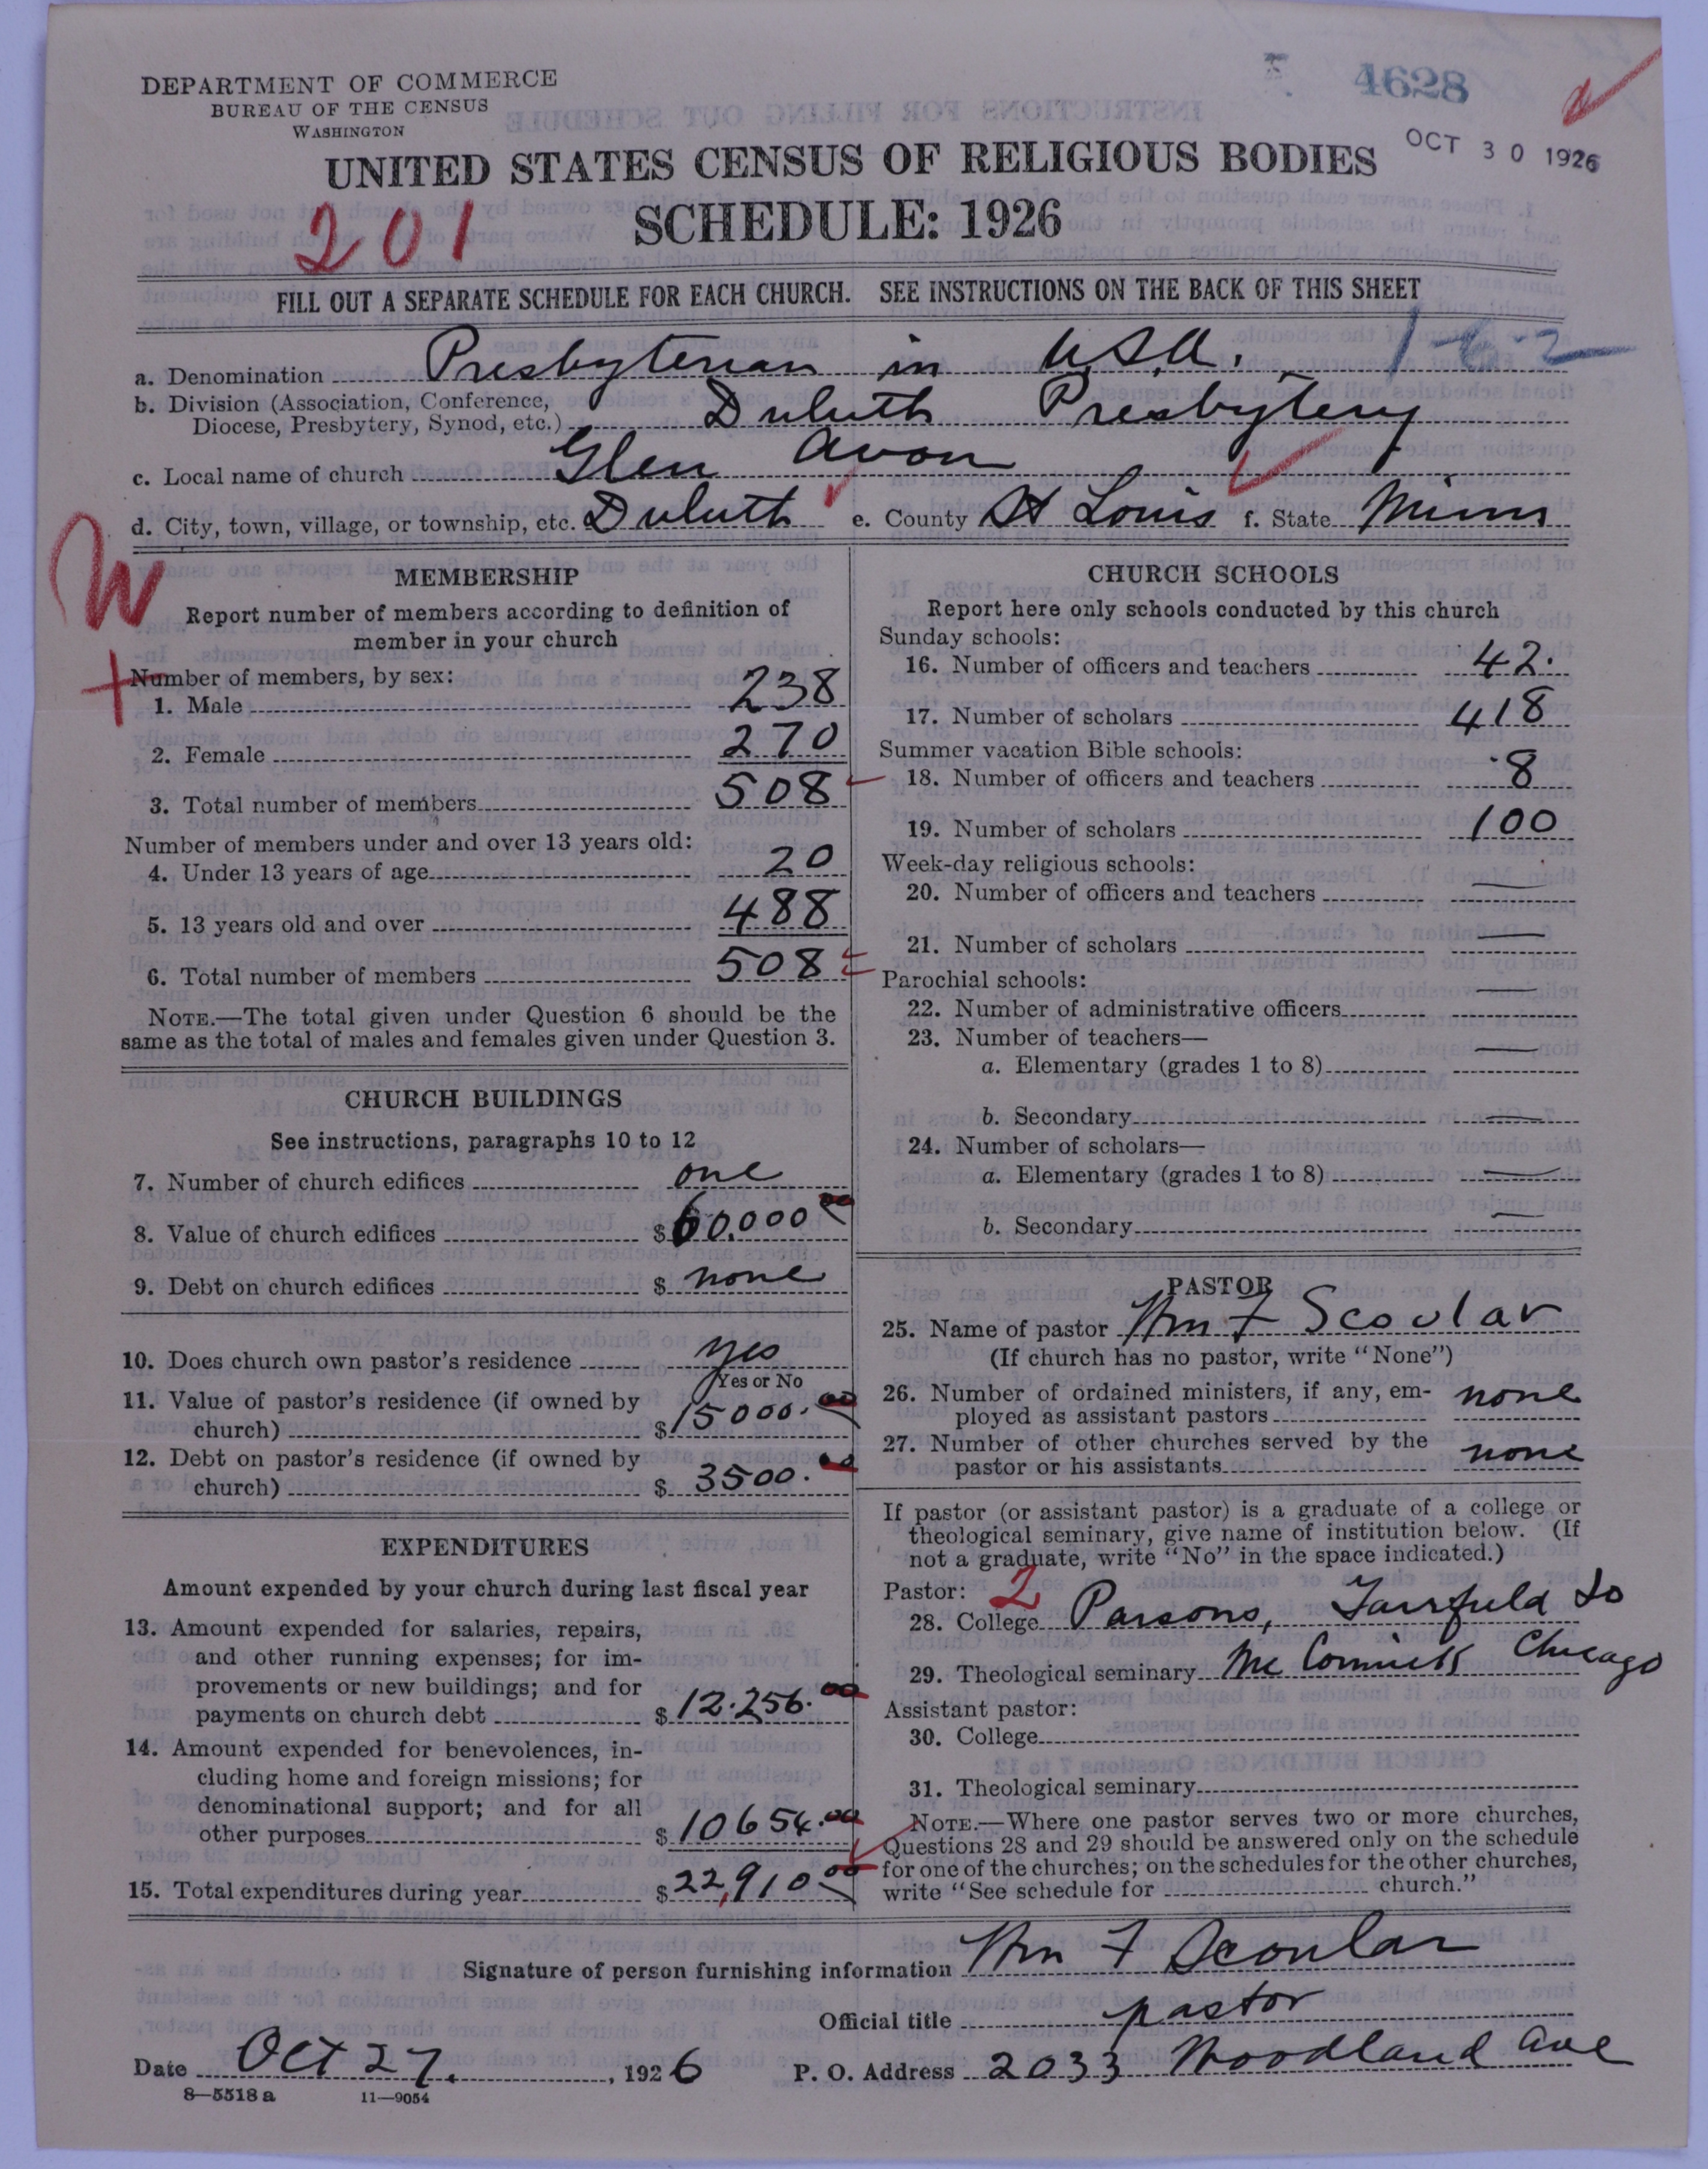 DEPARTMENT OF COMMERCE
BUREAU OF THE CENSUS
WASHINGTON
4628
OCT 30 1926
UNITED STATES CENSUS OF RELIGIOUS BODIES
SCHEDULE: 1926
201
FILL OUT A SEPARATE SCHEDULE FOR EACH CHURCH. SEE INSTRUCTIONS ON THE BACK OF THIS SHEET
1-6-2
a. Denomination Presbyterian in U.S.A.
b. Division (Association, Conference,
Diocese, Presbytery, Synod, etc.) Duluth Presbytery
c. Local name of church Glen Avon
d. City, town, village, or township, etc. Duluth e. County St Louis f. State Minn
W
MEMBERSHIP
Report number of members according to definition of
member in your church
Number of members, by sex:
1. Male 238
2. Female 270
3. Total number of members 508
Number of members under and over 13 years old:
4. Under 13 years of age 20
5. 13 years old and over 488
6. Total number of members 508
NOTE.—The total given under Question 6 should be the
same as the total of males and females given under Question 3.
CHURCH BUILDINGS
See instructions, paragraphs 10 to 12
7. Number of church edifices one
8. Value of church edifices $60,000 00
9. Debt on church edifices $ none
10. Does church own pastor's residence yes
Yes or No
11. Value of pastor's residence (if owned by
church) $15000.00
12. Debt on pastor's residence (if owned by
church) $ 3500.00
EXPENDITURES
Amount expended by your church during last fiscal year
13. Amount expended for salaries, repairs,
and other running expenses; for im-
provements or new buildings; and for
payments on church debt $12.256.00
14. Amount expended for benevolences, in-
cluding home and foreign missions; for
denominational support; and for all
other purposes $10654.00
15. Total expenditures during year $22,910 00
CHURCH SCHOOLS
Report here only schools conducted by this church
Sunday schools:
16. Number of officers and teachers 42.
17. Number of scholars 418
Summer vacation Bible schools:
18. Number of officers and teachers 8
19. Number of scholars 100
Week-day religious schools:
20. Number of officers and teachers —
21. Number of scholars —
Parochial schools:
22. Number of administrative officers —
23. Number of teachers—
a. Elementary (grades 1 to 8) —
b. Secondary —
24. Number of scholars—
a. Elementary (grades 1 to 8) —
b. Secondary —
PASTOR
25. Name of pastor Wm F Scoular
(If church has no pastor, write "None")
26. Number of ordained ministers, if any, em-
ployed as assistant pastors none
27. Number of other churches served by the
pastor or his assistants none
If pastor (or assistant pastor) is a graduate of a college or
theological seminary, give name of institution below. (If
not a graduate, write "No" in the space indicated.)
Pastor: 2
28. College Parsons, Fairfield Io
29. Theological seminary McCormick Chicago
Assistant pastor:
30. College
31. Theological seminary
NOTE.—Where one pastor serves two or more churches,
Questions 28 and 29 should be answered only on the schedule
for one of the churches; on the schedules for the other churches,
write "See schedule for church."
Signature of person furnishing information Wm F Scoular
Official title pastor
Date Oct 27, 1926 P. O. Address 2033 Woodland Ave
8—5518 a 11—9054